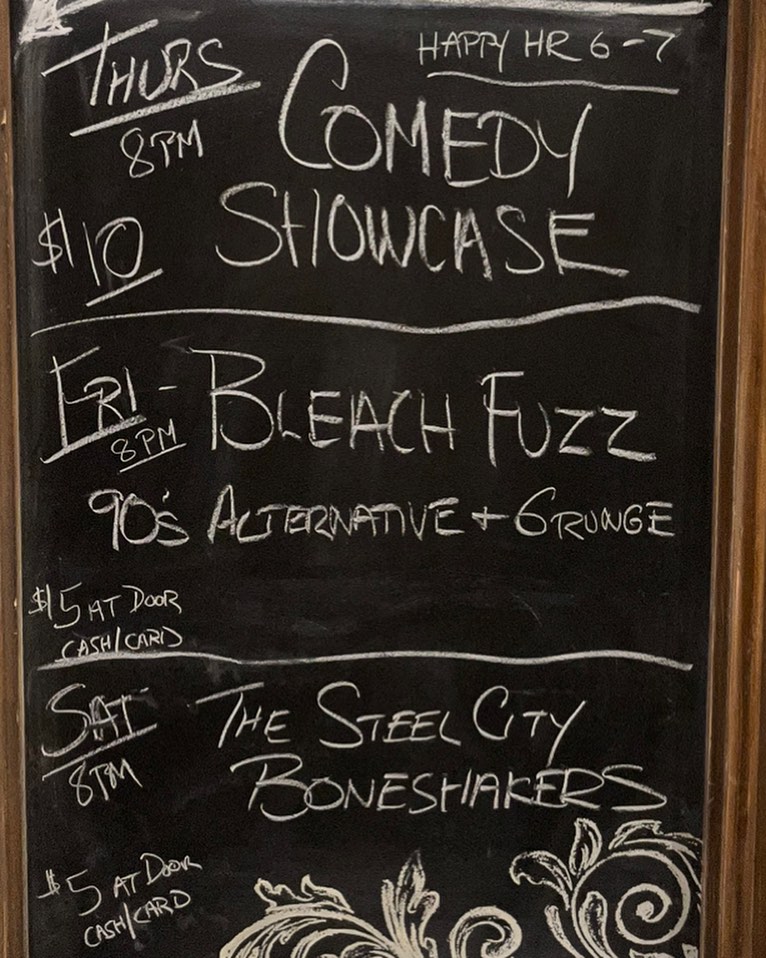 THURS
HAPPY HR 6-7
8PM
COMEDY
SHOWCASE
$10
FRI - BLEACH FUZZ
8PM
90's ALTERNATIVE + GRUNGE
$5 AT DOOR
CASH/CARD
SAT THE STEEL CITY
8PM BONESHAKERS
$5 AT DOOR
CASH/CARD